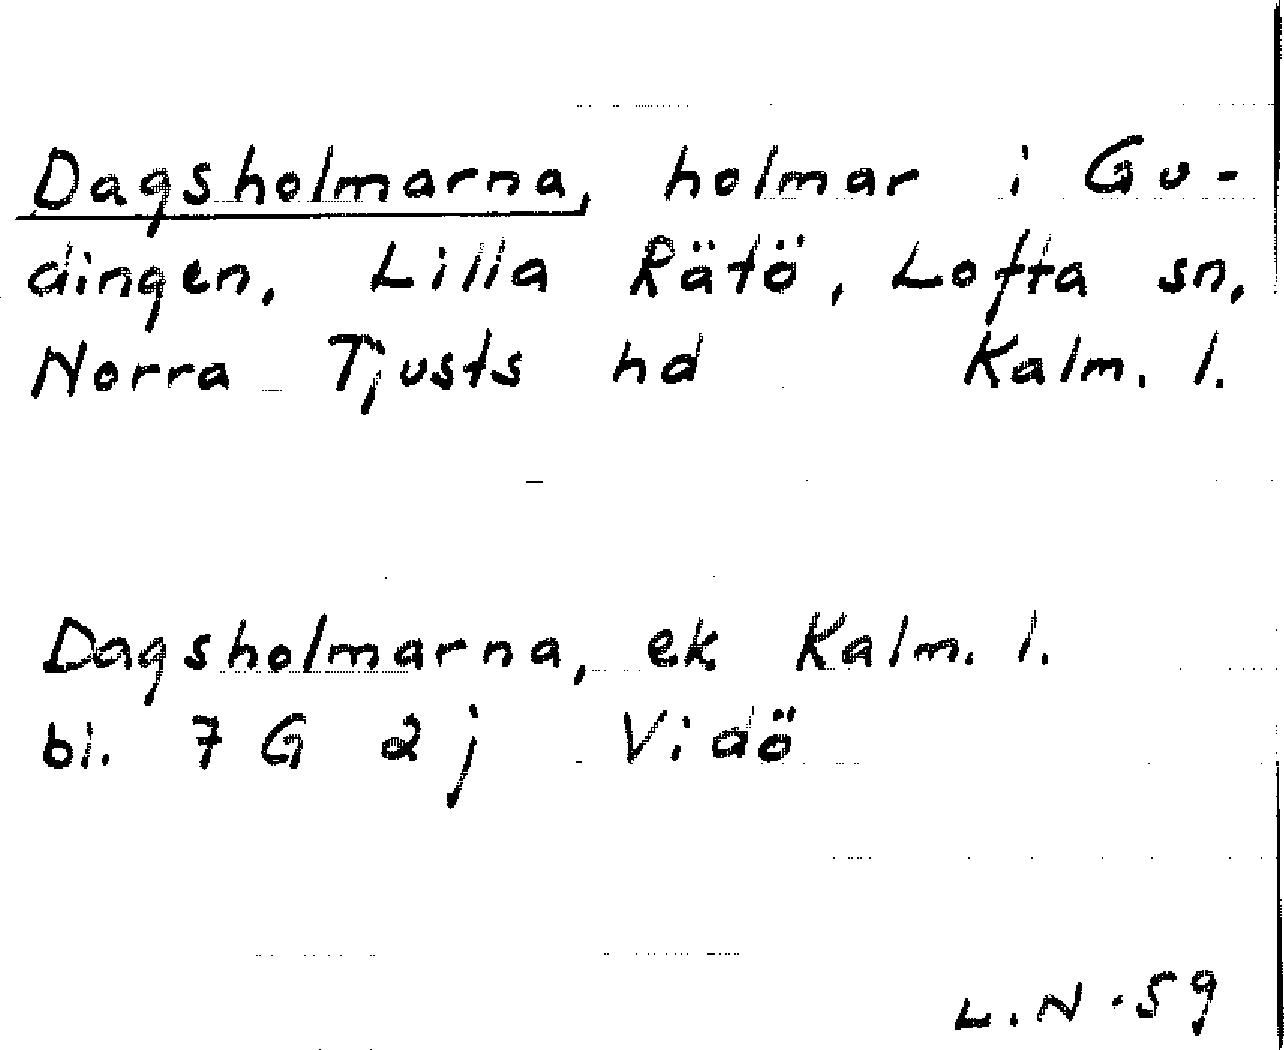 Dagsholmarna, holmar i Gu-
dingen, Lilla Rätö, Lofta sn,
Norra Tjusts hd Kalm. l.
Dagsholmarna, ek Kalm. l.
bl. 7 G 2 j Vidö
L.N -59